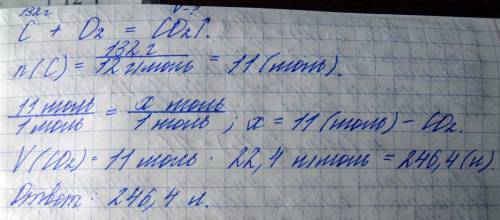 132г V-?
C + O₂ = CO₂↑.
n(C) = 132 г / 12 г/моль = 11 (моль).
11 моль / 1 моль = x моль / 1 моль ; x = 11 (моль) - CO₂.
V(CO₂) = 11 моль · 22,4 л/моль = 246,4 (л).
Ответ: 246,4 л.